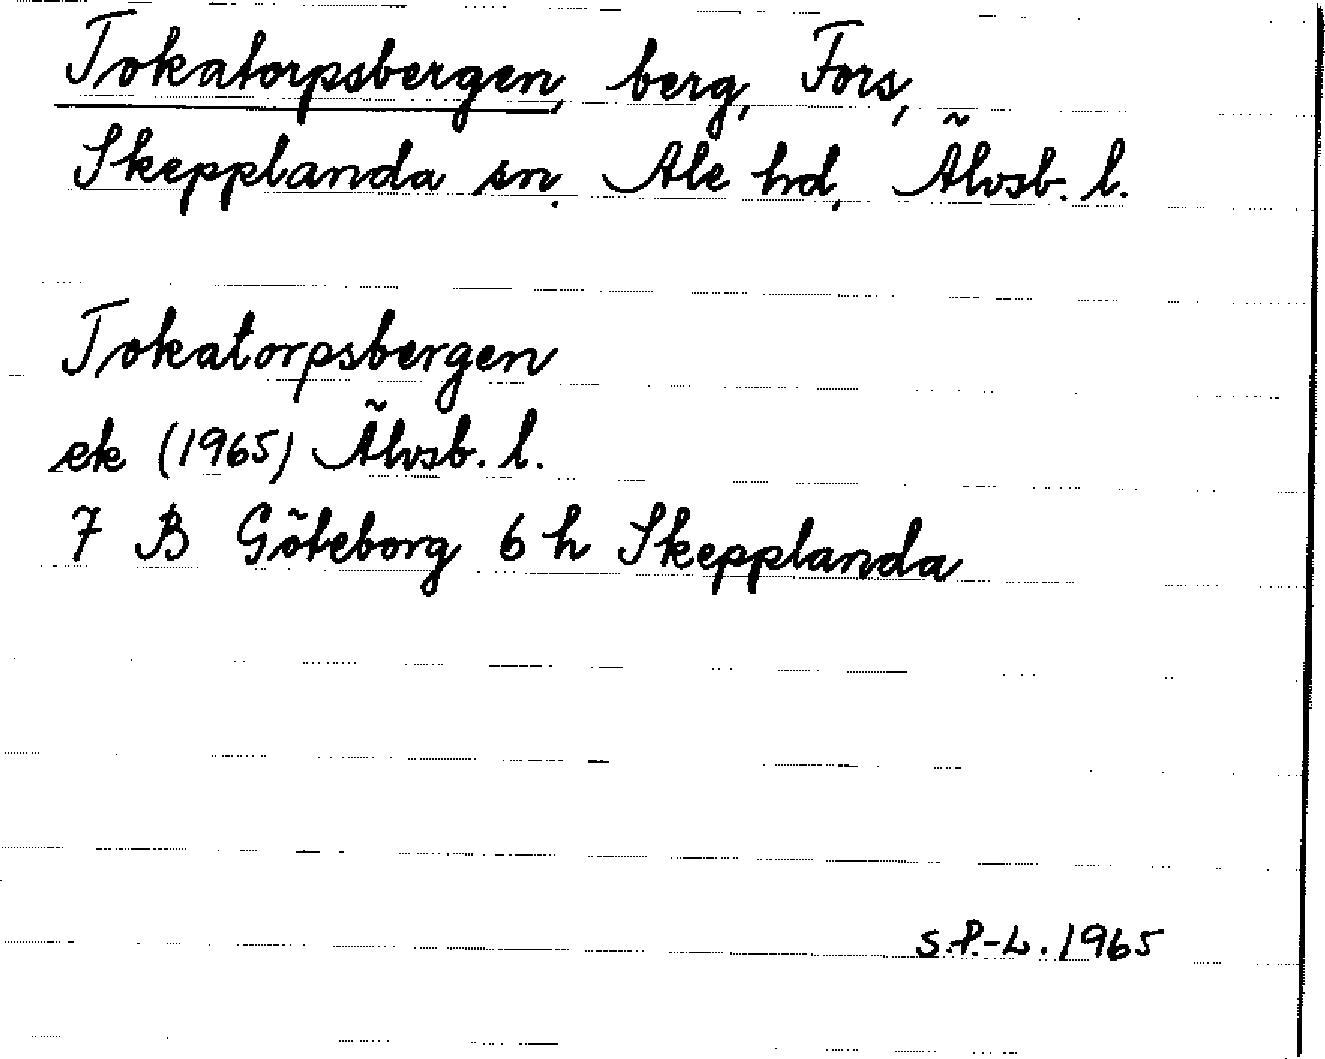 Tokatorpsbergen, berg, Fors,
Skepplanda sn, Ale hd, Älvsb. l.
Tokatorpsbergen
ek (1965) Älvsb. l.
7 B Göteborg 6 h Skepplanda
S.P.-L. 1965